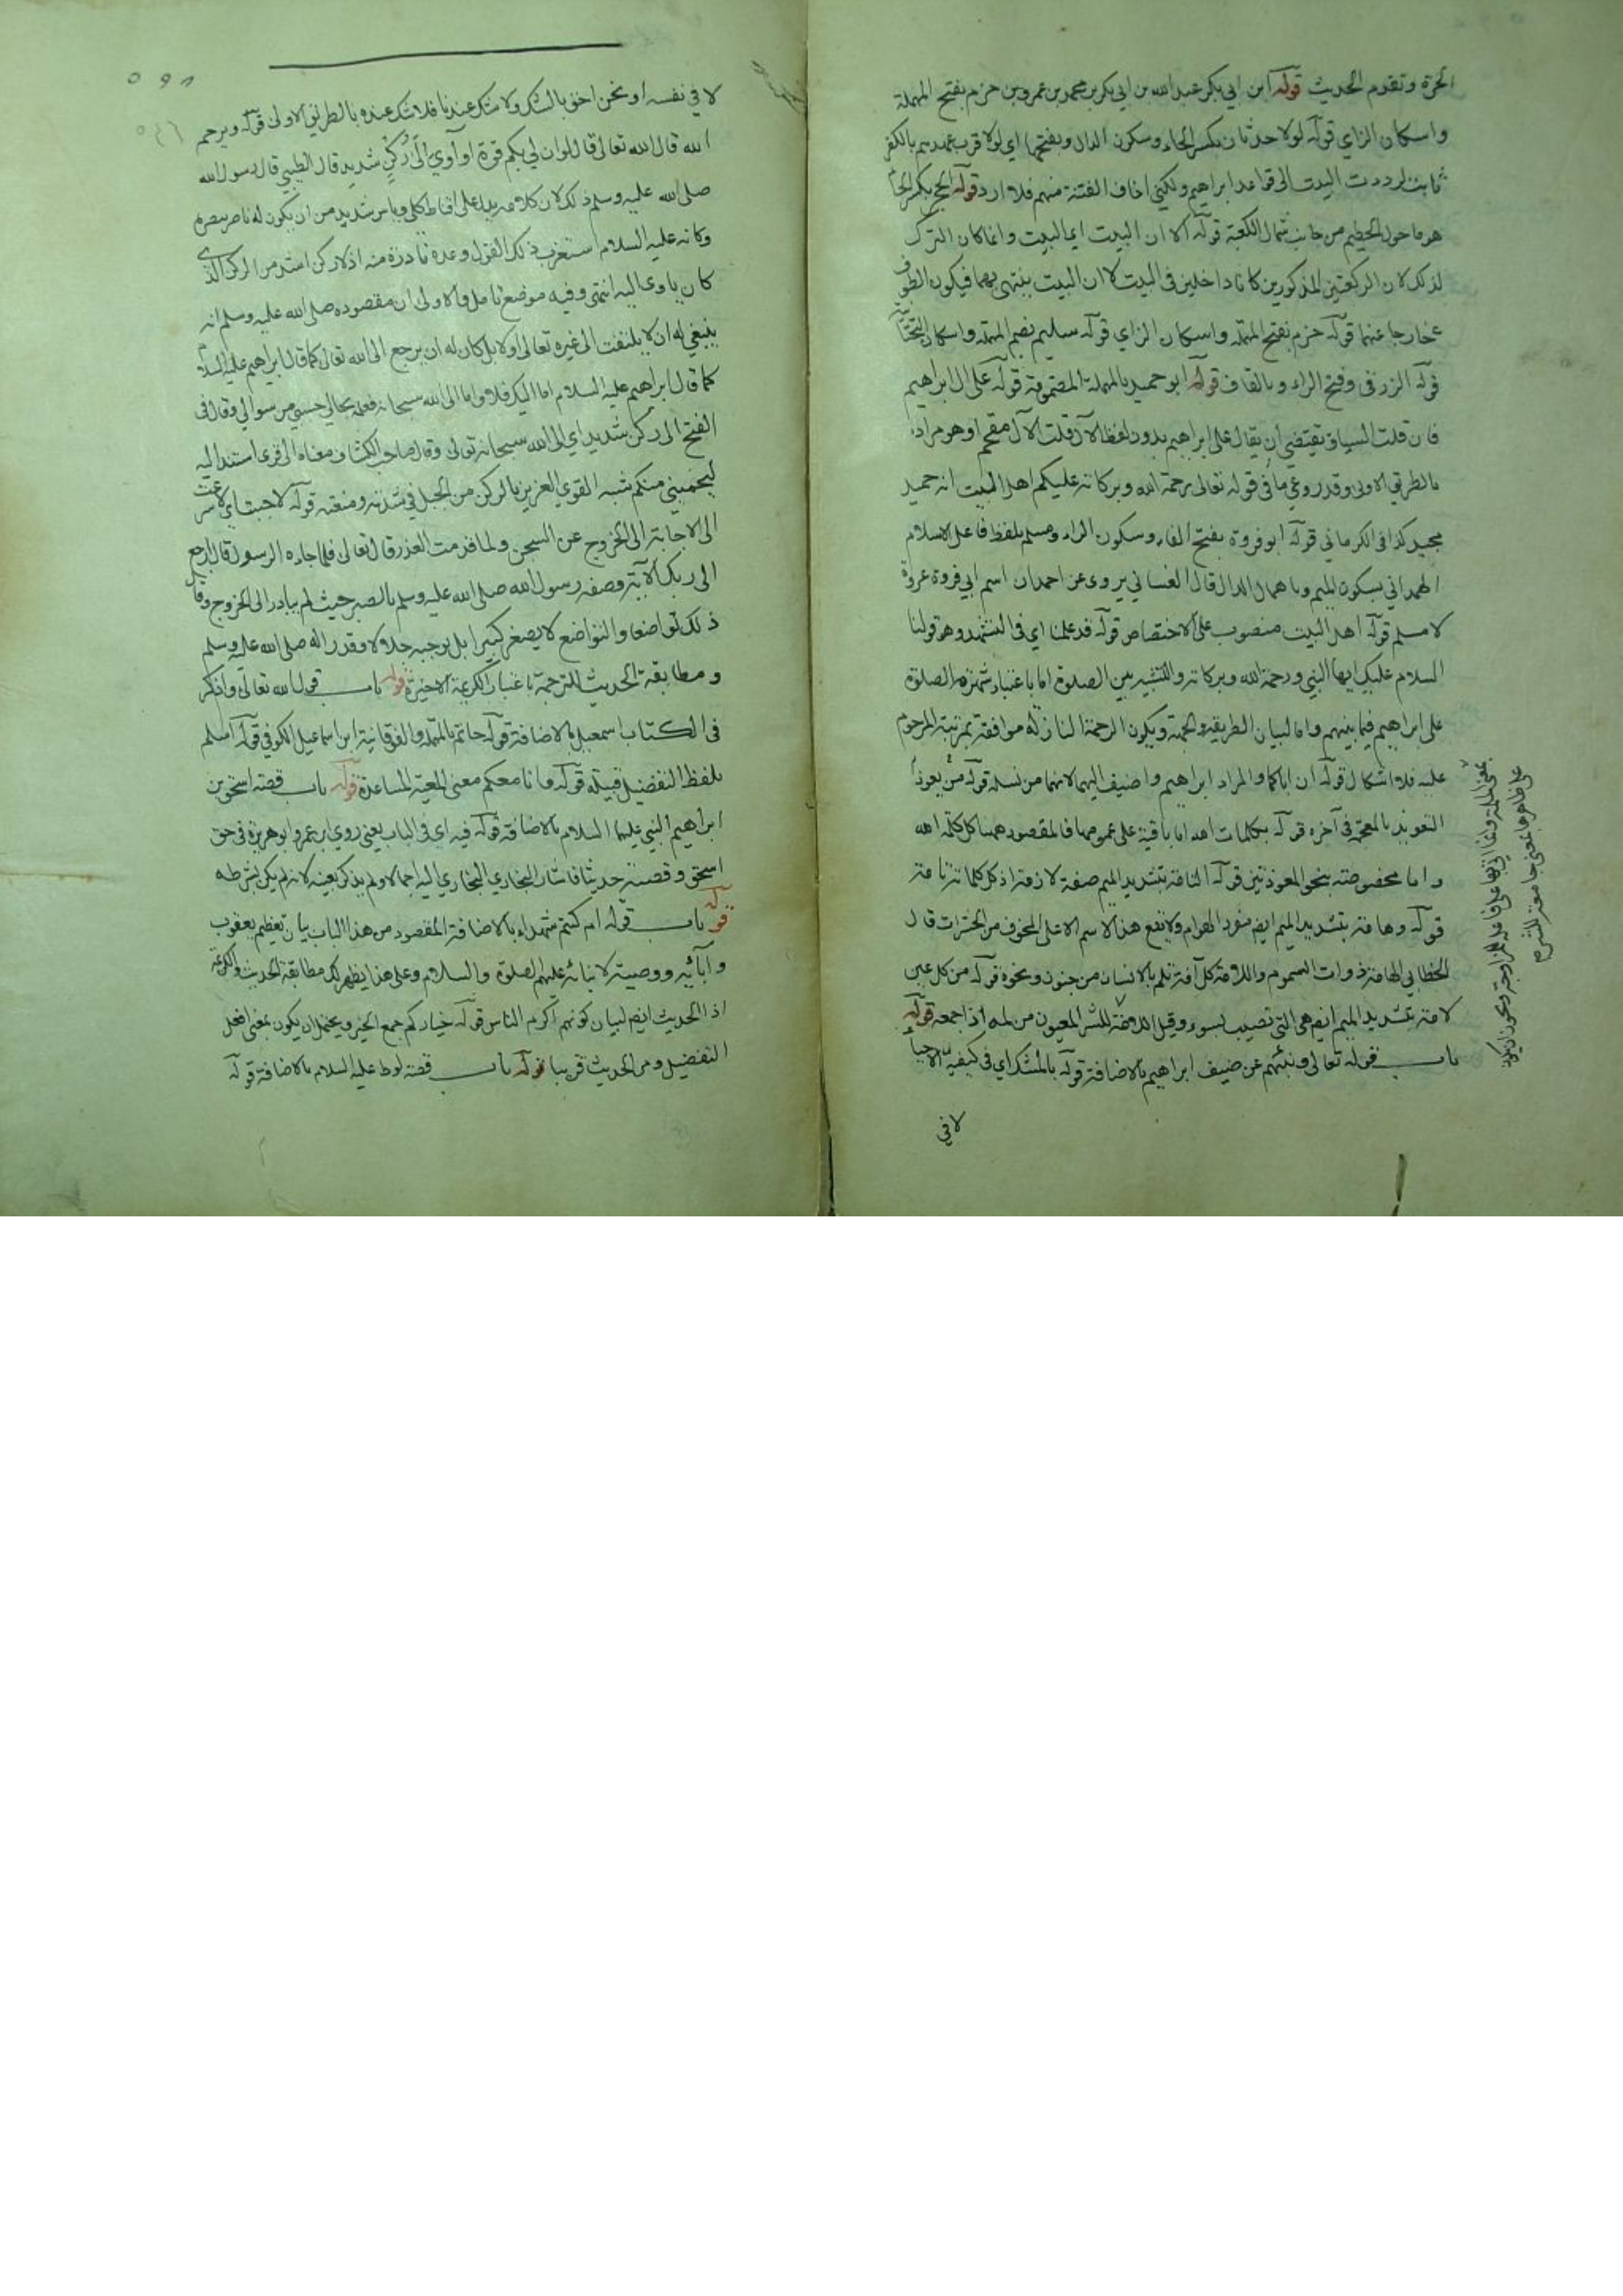 الحرة وتقدم الحديث قوله ابن ابي بكر عبد الله بن ابي بكر بن محمد بن عمرو بن حزم بفتح المهملة
واسكان الزاي قوله لولا حدثان بكسر الحاء وسكون الدال وبفتحها اي لولا قرب عهدهم بالكفر
ثابت لرددت البيت الى قواعد ابراهيم ولكني اخاف الفتنة منهم فلا ارد قوله الحج بكسر الحاء
هو ما حول الحطيم من جانب شمال الكعبة قوله الا ان البيت اي البيت وانما كان الترك
لذلك لان الركنين المذكورين كانا داخلين في البيت لا ان البيت ينتهي بهما فيكون الطوف
خارجا عنهما قوله حزم بفتح المهملة واسكان الزاي قوله سليم بضم المهملة واسكان
قوله الزرقي وفتح الراء وبالقاف قوله ابو حميد بالمهملة المضمومة قوله على ال ابراهيم
فان قلت السياق يقتضي أن يقال على ابراهيم بدون لفظ الآل قلت الآل مقحم او هو مراد
بالطريق الاولى وقد روعي ما في قوله تعالى رحمة الله وبركاته عليكم اهل البيت انه حميد
مجيد كذا في الكرماني قوله ابو فروة بفتح الفاء وسكون الراء ومسلم بلفظ فاعل الاسلام
الهمداني بسكون الميم وباهمال الدال قال الغساني يروى عن احمد ان اسم ابي فروة عروة
لا مسلم قوله اهل البيت منصوب على الاختصاص قوله قد علمنا اي في التشهد وهو قولنا
السلام عليك ايها النبي ورحمة الله وبركاته والتشبيه بين الصلوة اما باعتبار شهرة الصلوة
على ابراهيم فيما بينهم واما لبيان الطريقة والجهة ويكون الرحمة النازلة موافقة بمرتبة المرحوم
عليه فلا اشكال قوله ان اباكما والمراد ابراهيم واضيف اليهما لانهما من نسله قوله من يعوذ
التعويذ بالمعجمة في آخره قوله بكلمات الله اما باقية على عمومها فالمقصود ههنا كل كلمة الله
واما مخصوصة بنحو المعوذتين قوله التامة بتشديد الميم صفة لازمة اذ كل كلماته تامة
قوله وهامة بتشديد الميم ايضا مفرد الهوام ولا يقع هذا الاسم الا على المخوف من الحشرات قال
الخطابي الهامة ذوات السموم واللامة كل آفة تلم بالانسان من جنون ونحوه قوله من كل عين
لامة بتشديد الميم ايضا هي التي تصيب بسوء وقيل اللامة للشر المعيون من لمه اذا جمعه قوله
باب قوله تعالى ونبئهم عن ضيف ابراهيم بالاضافة قوله بالشك اي في كيفية الاحياء
لا في
لا في نفسه او نحن احق بالشك ولا شك عندنا فلا شك عنده بالطريق الاولى قوله ويرحم
الله قال الله تعالى قال لو ان لي بكم قوة او آوي الى ركن شديد قال الطيبي قال رسول الله
صلى الله عليه وسلم ذلك لان كلامه يدل على اقناط كلي وياس شديد من ان يكون له ناصر ينصره
وكانه عليه السلام استغرب ذلك القول وعده نادرة منه اذ لا ركن اشد من الركن الذي
كان ياوى اليه انتهى وفيه موضع تامل والاولى ان مقصوده صلى الله عليه وسلم انه
ينبغي له ان لا يلتفت الى غيره تعالى اولا بل كان له ان يرجع الى الله تعالى كما قال ابراهيم عليه السلام
كما قال ابراهيم عليه السلام اما اليك فلا واما الى الله سبحانه فعلمه بحالي حسبي من سوالي وقال في
الفتح الى ركن شديد اي الى الله سبحانه وتعالى وقال صاحب الكشاف معناه الى قوي استند اليه
ليحميني منكم شبه القوي العزيز بالركن من الجبل في شدته ومنعته قوله لاجبت اي لاسرعت
الى الاجابة الى الخروج عن السجن ولما قدمت العذر قال تعالى فلما جاءه الرسول قال ارجع
الى ربك الآية وصفه رسول الله صلى الله عليه وسلم بالصبر حيث لم يبادر الى الخروج وقال
ذلك تواضعا والتواضع لا يصغر كبيرا بل يوجب جلالا وقدرا له صلى الله عليه وسلم
ومطابقة الحديث للترجمة باعتبار الكريمة الاخيرة قوله باب قول الله تعالى واذكر
في الكتاب اسمعيل بالاضافة قوله حاتم بالمهملة والفوقانية ابن اسماعيل الكوفي قوله اسلم
بلفظ التفضيل قبيلة قوله وانا معكم معنى المعية المساعدة قوله باب قصة اسحق بن
ابراهيم النبي عليهما السلام بالاضافة قوله فيه اي في الباب يعني روي ابن عمر وابو هريرة في حق
اسحق وقصته حديثا فاشار البخاري البخاري اليه اجمالا ولم يذكر بعينه لانه لم يكن بشرطه
قوله باب قوله ام كنتم شهداء بالاضافة المقصود من هذا الباب بيان تعظيم يعقوب
وآبائه ووصيته لابنائه عليهم الصلوة والسلام وعلى هذا يظهر لك مطابقة الحديث والكريمة
اذ الحديث ايضا لبيان كونهم اكرم الناس قوله خياركم جمع الخير ويحتمل ان يكون بمعنى افعل
التفضيل ومر الحديث قريبا قوله باب قصة لوط عليه السلام بالاضافة قوله